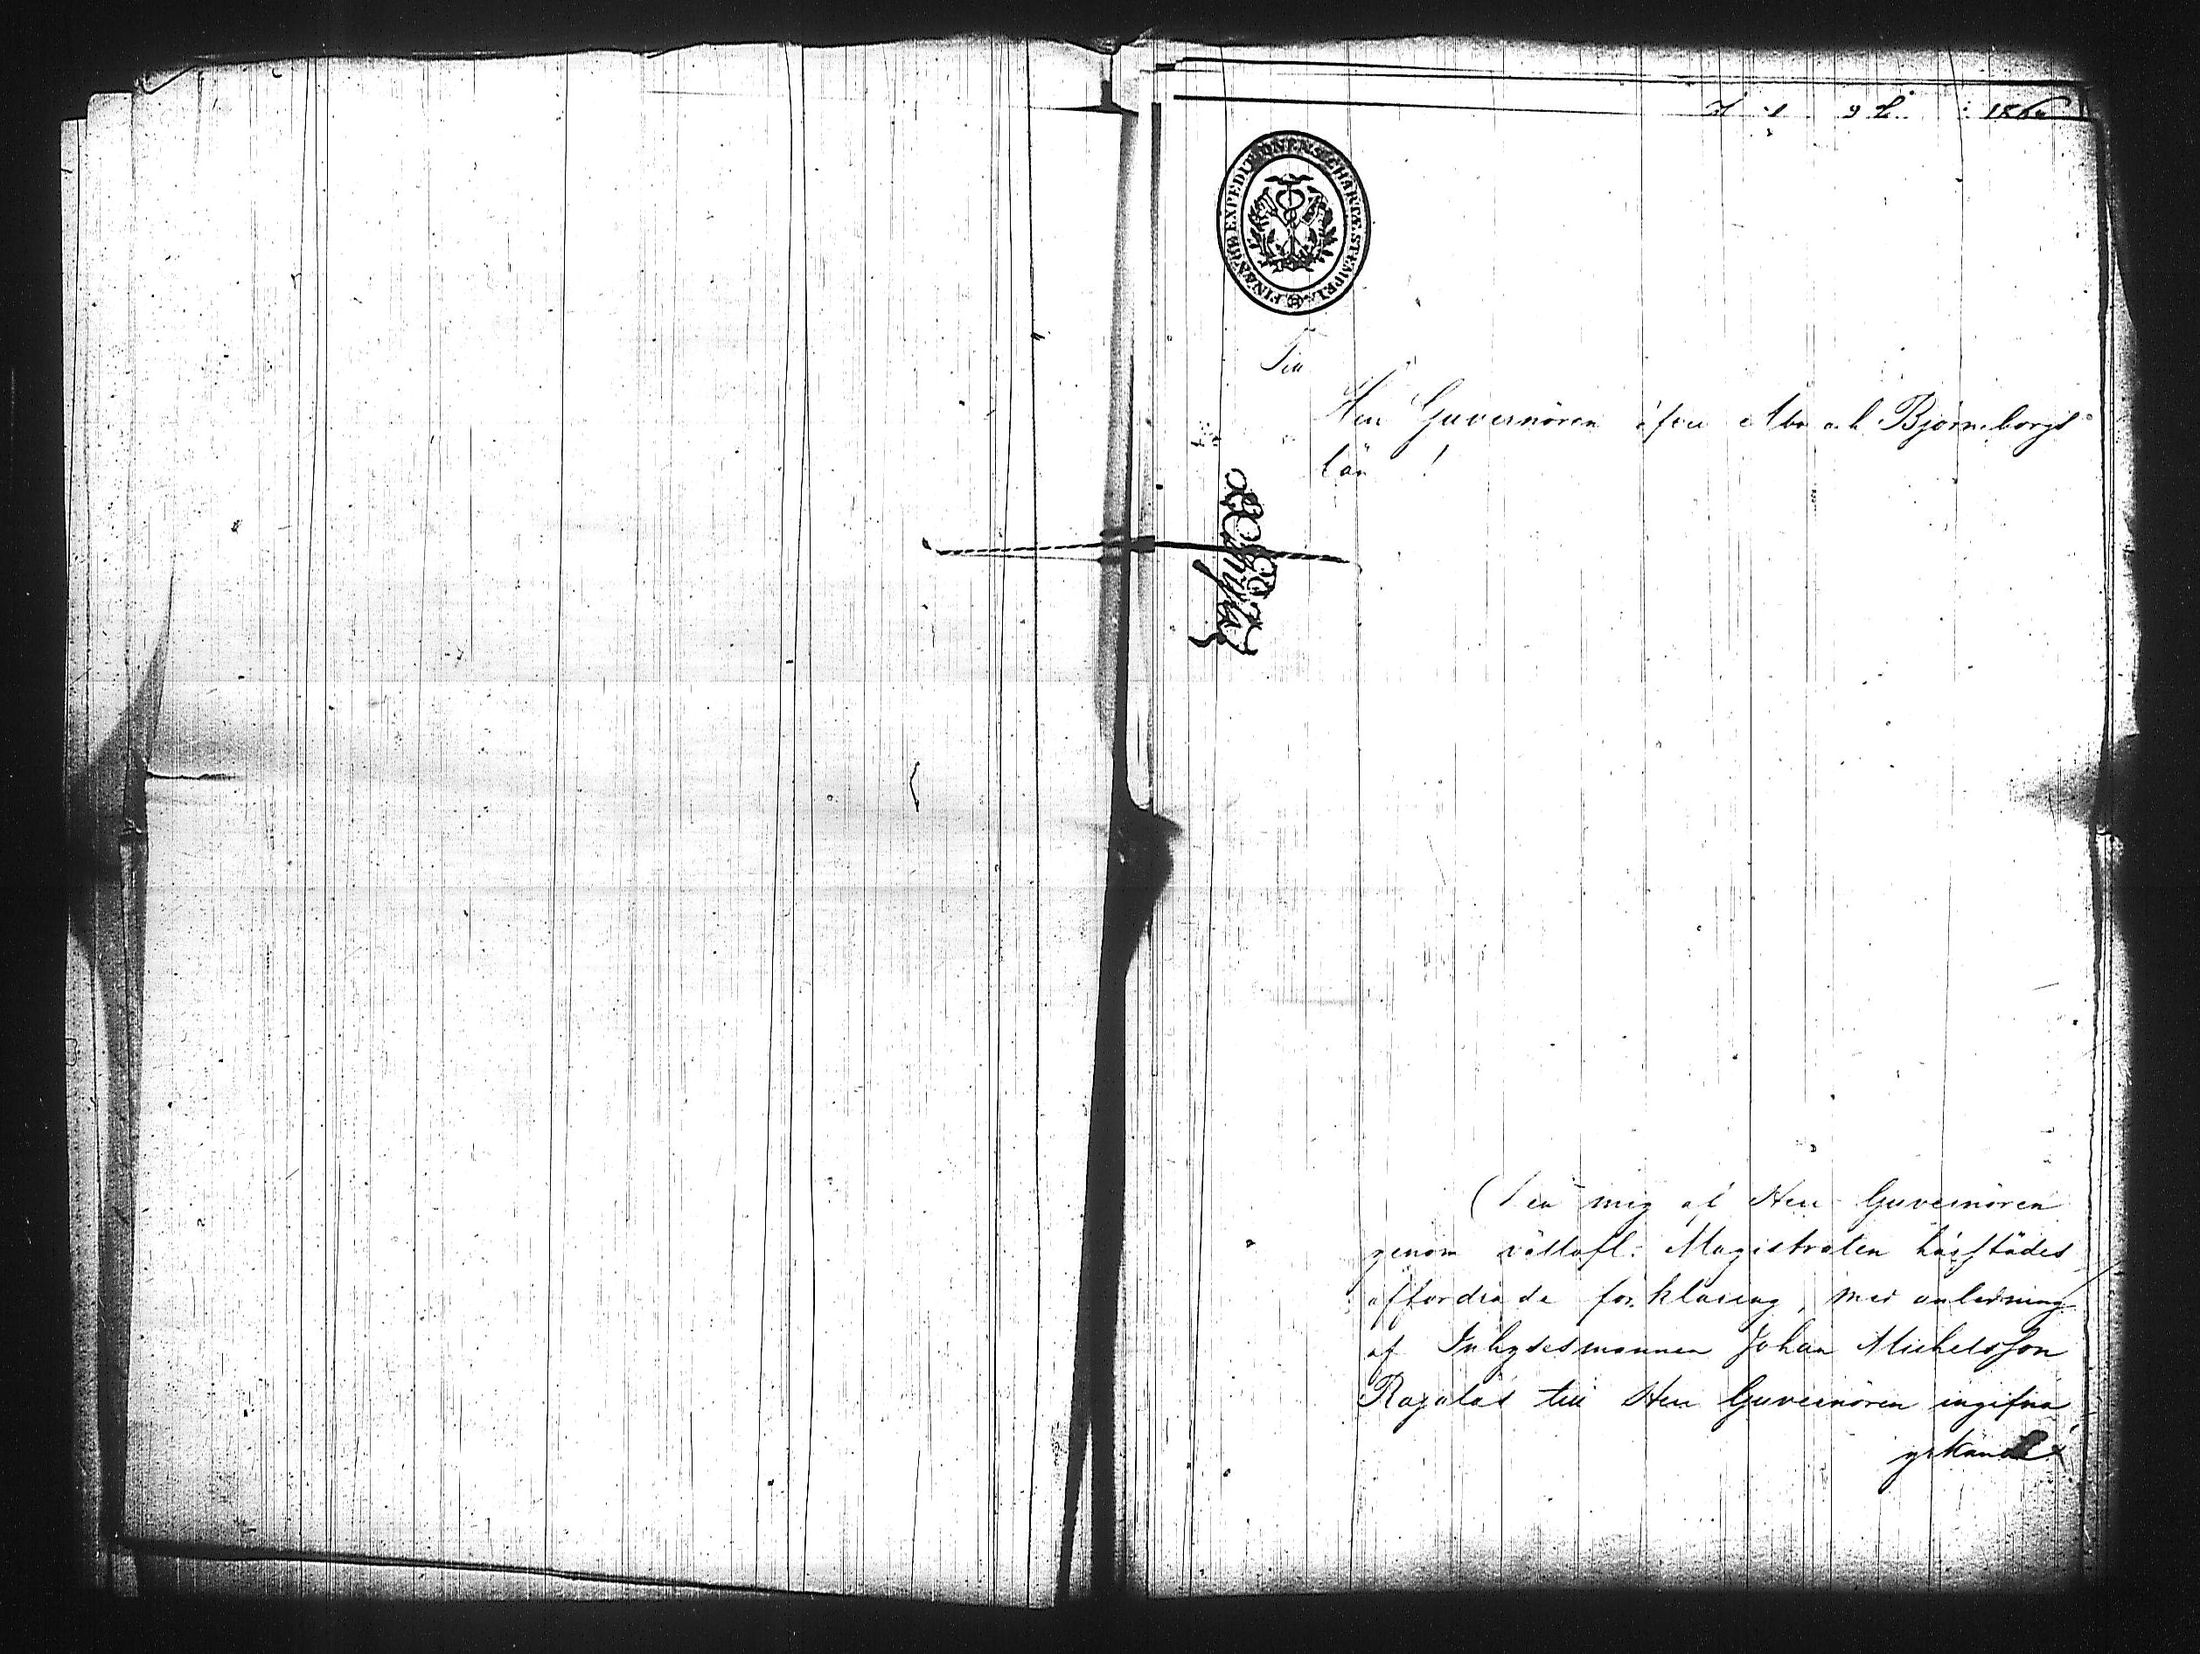 1860
FINANCE EXPEDITIONENS CHARTÆ STEMPEL
Till
Herr Guvernören öfver Åbo och Björneborgs
län !
Den mig af Herr Guvernören
genom vällofl: Magistraten härstädes
affordrade förklaring, med anledning
af Inhysesmannen Johan Michelsson
Rajalas till Herr Guvernören ingifna